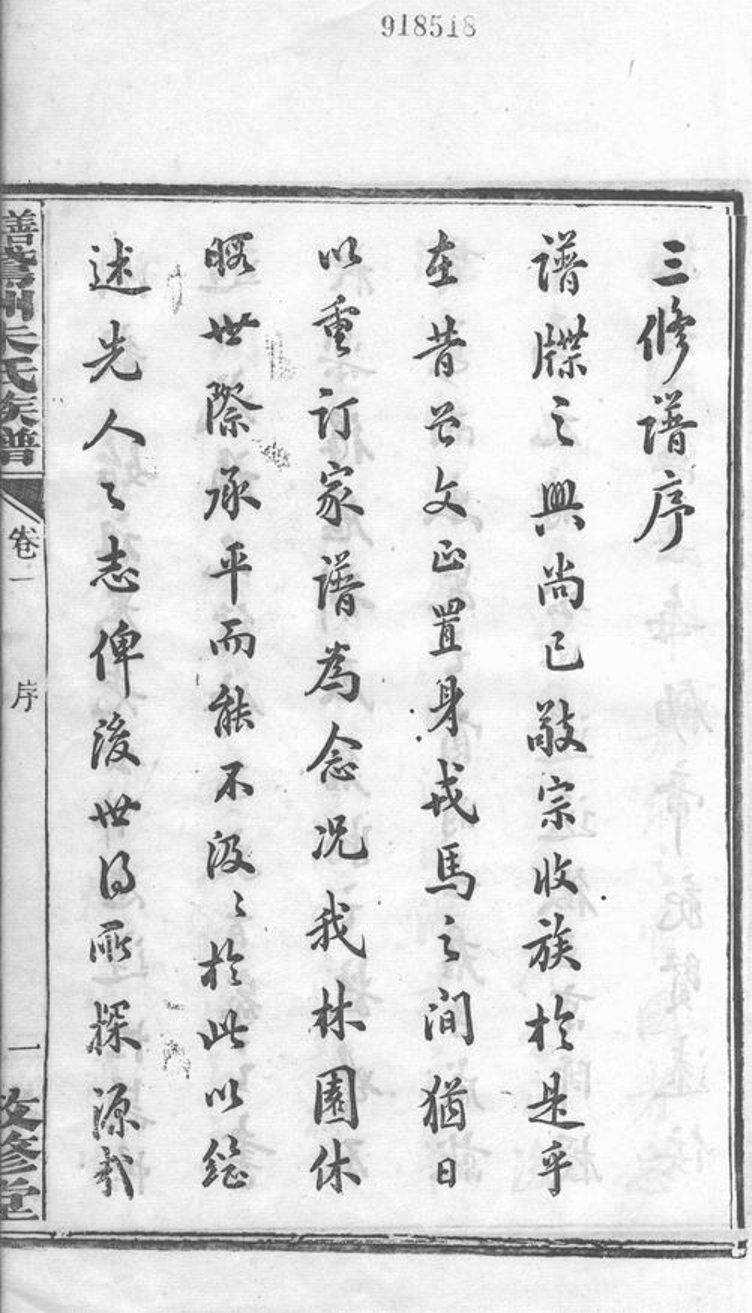 918518
三修譜序
譜牒之興尚已敬宗收族於是乎
在昔范文正置身戎馬之間猶日
以重訂家譜為念况我林園休
暇世際承平而能不汲〻於此以繼
述先人之志俾後世得所探源哉
朱氏族譜
卷一
序
一
敦修堂